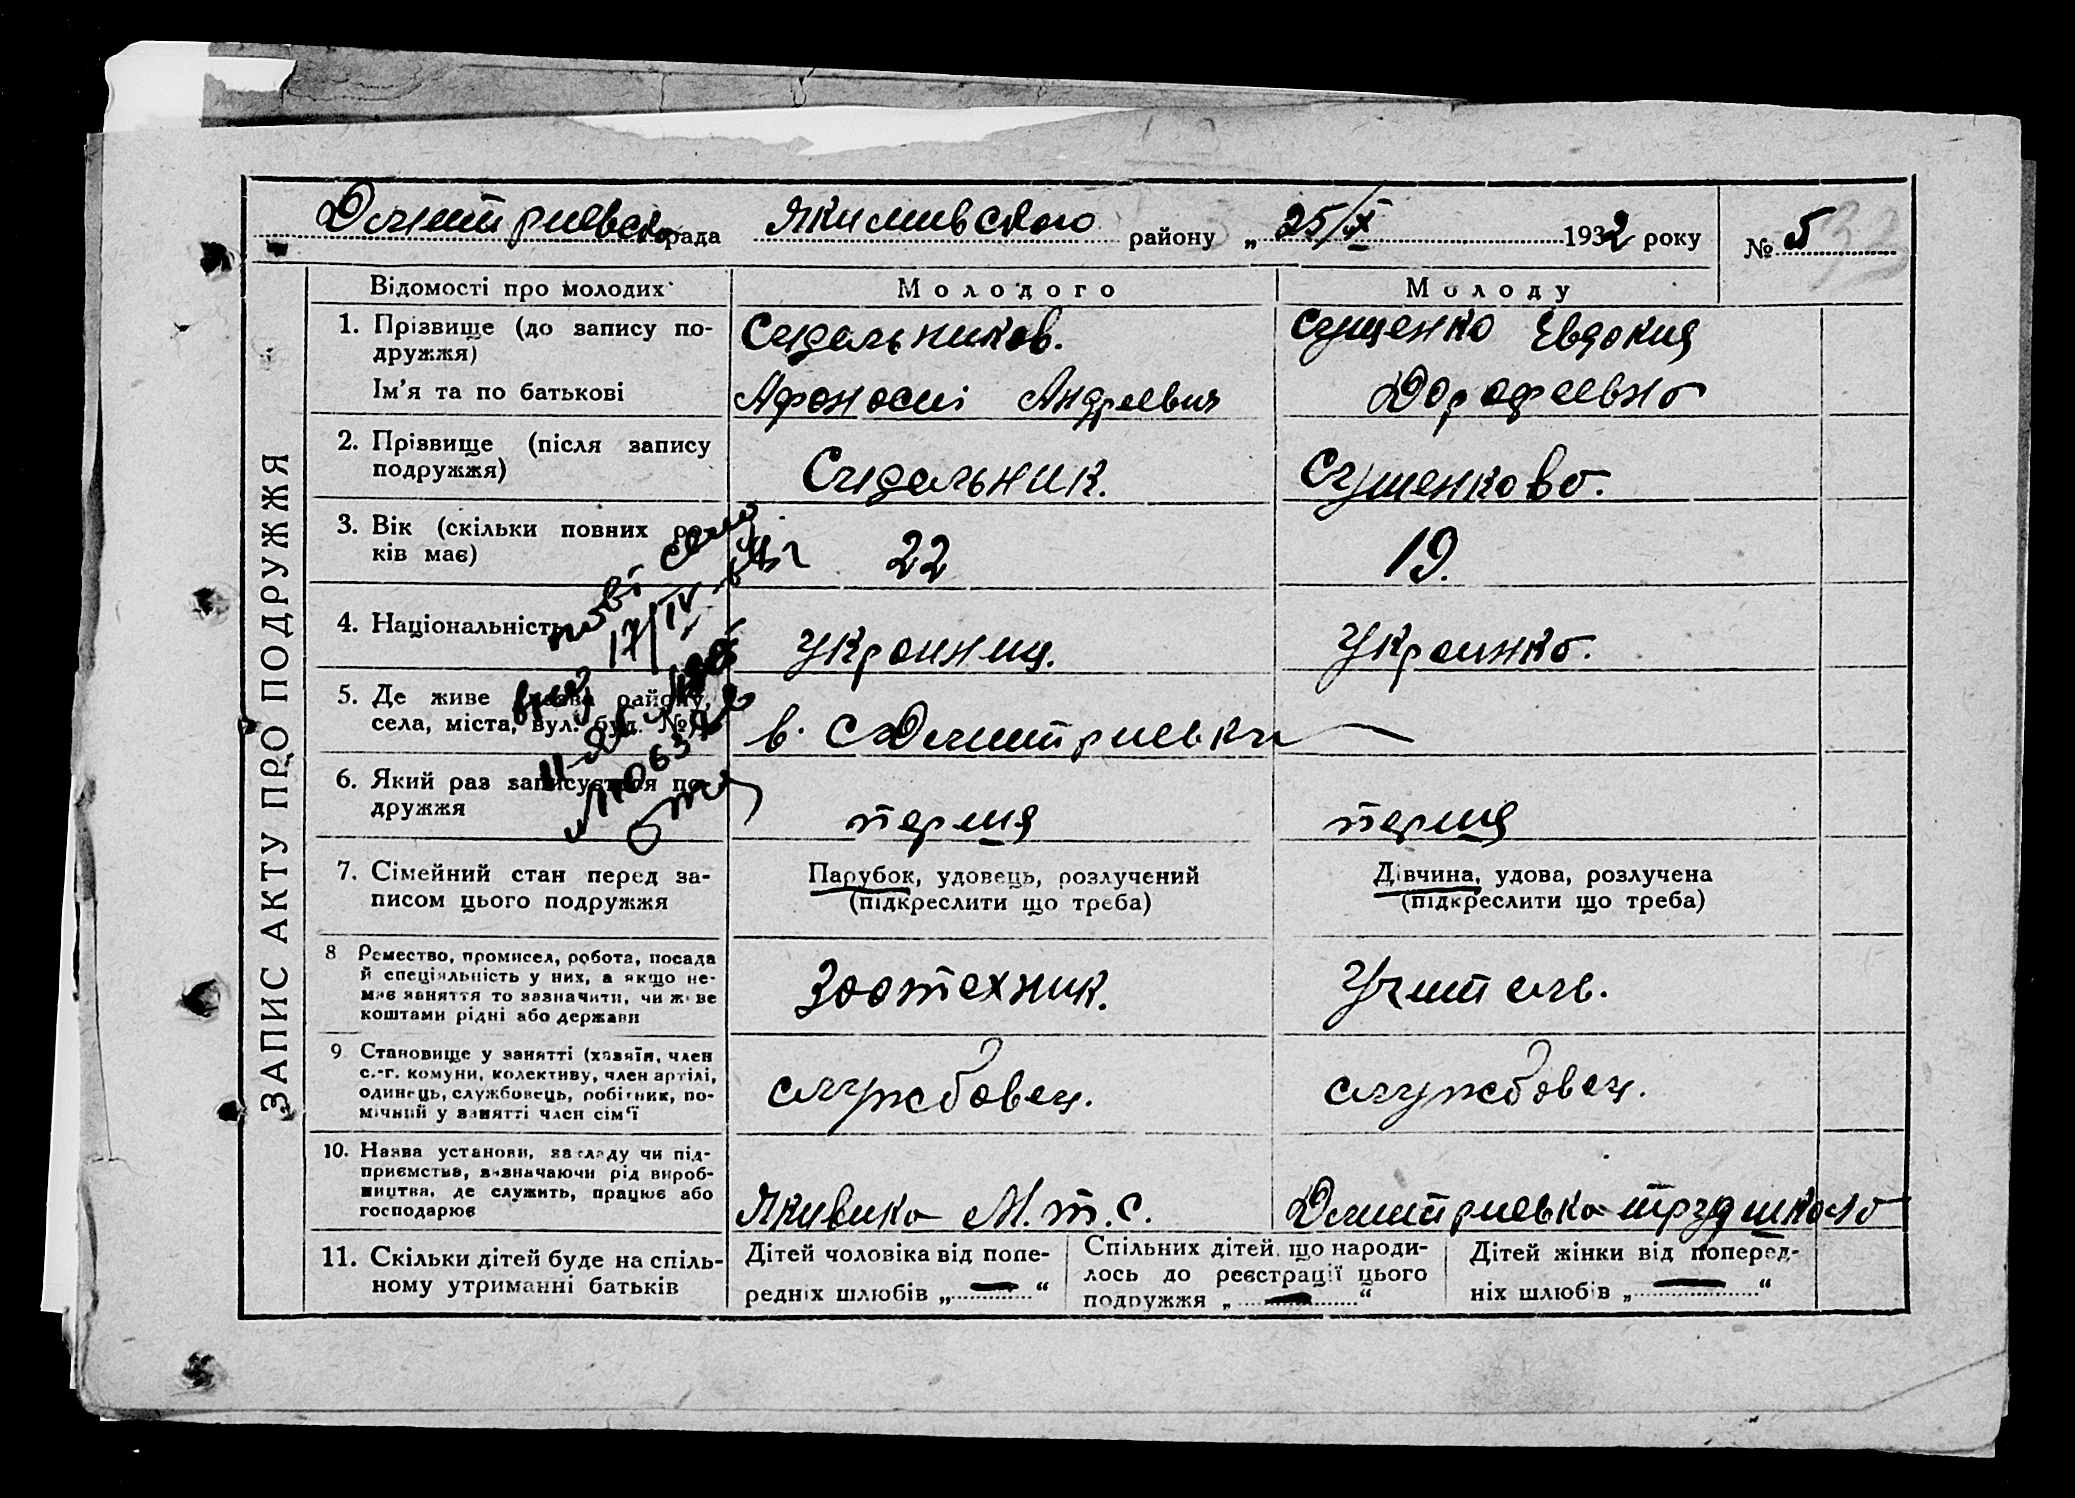 Дмитриевско рада Якимивского району „ 25/IX 1932 року № 5
ЗАПИС АКТУ ПРО ПОДРУЖЖЯ
Відомості про молодих
Молодого
Молоду
1. Прізвище (до запису по-
дружжя)
Ім'я та по батькові
Сидельников.
Афонасиі Андреевич
Сущенко Евдокия
Дорофеевна
2. Прізвище (після запису
подружжя)
Сидельник.
Сущенкова.
3. Вік (скільки повних ро-
ків має)
22
19.
4. Національність
Украинец.
Украинка.
5. Де живе (назва району,
села, міста, вул. буд. №)
в. С Дмитриевки
6. Який раз записується по-
дружжя
перша
перша
7. Сімейний стан перед за-
писом цього подружжя
Парубок, удовець, розлучений
(підкреслити що треба)
Дівчина, удова, розлучена
(підкреслити що треба)
8 Ремество, промисел, робота, посада
й спеціяльність у них, а якщо не-
має заняття то зазначити, чи живе
коштами рідні або держави
Зоотехник.
Учитель.
9. Становище у занятті (хазяїн, член
с.-г. комуни, колективу, член артілі,
одинець, службовець, робітник, по-
мічний у занятті член сім'ї
службовец.
службовец.
10. Назва установи, закладу чи під-
приємства, визначаючи рід вироб-
ництва, де служить, працює або
господарює
М.т.с.
Дмитриевка труд школа
11. Скільки дітей буде на спіль-
ному утриманні батьків
Дітей чоловіка від попе-
редніх шлюбів „ — “
Спільних дітей, що народи-
лось до реєстрації цього
подружжя „ — “
Дітей жінки від поперед-
ніх шлюбів „ — “
17/IV